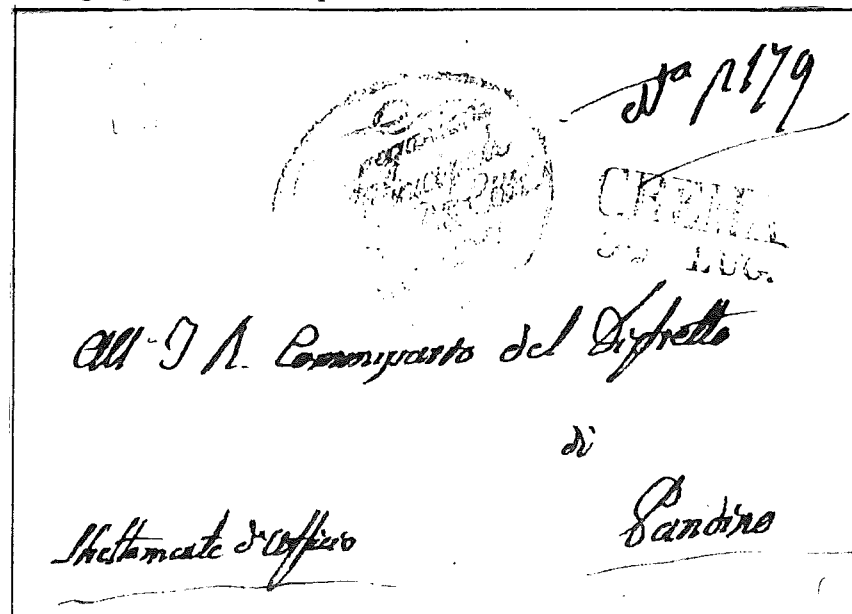 Nª 1179
CREMA
LUG.
All' I R. Commissario del Distretto
di
Pandino
Strettamente d'Ufficio